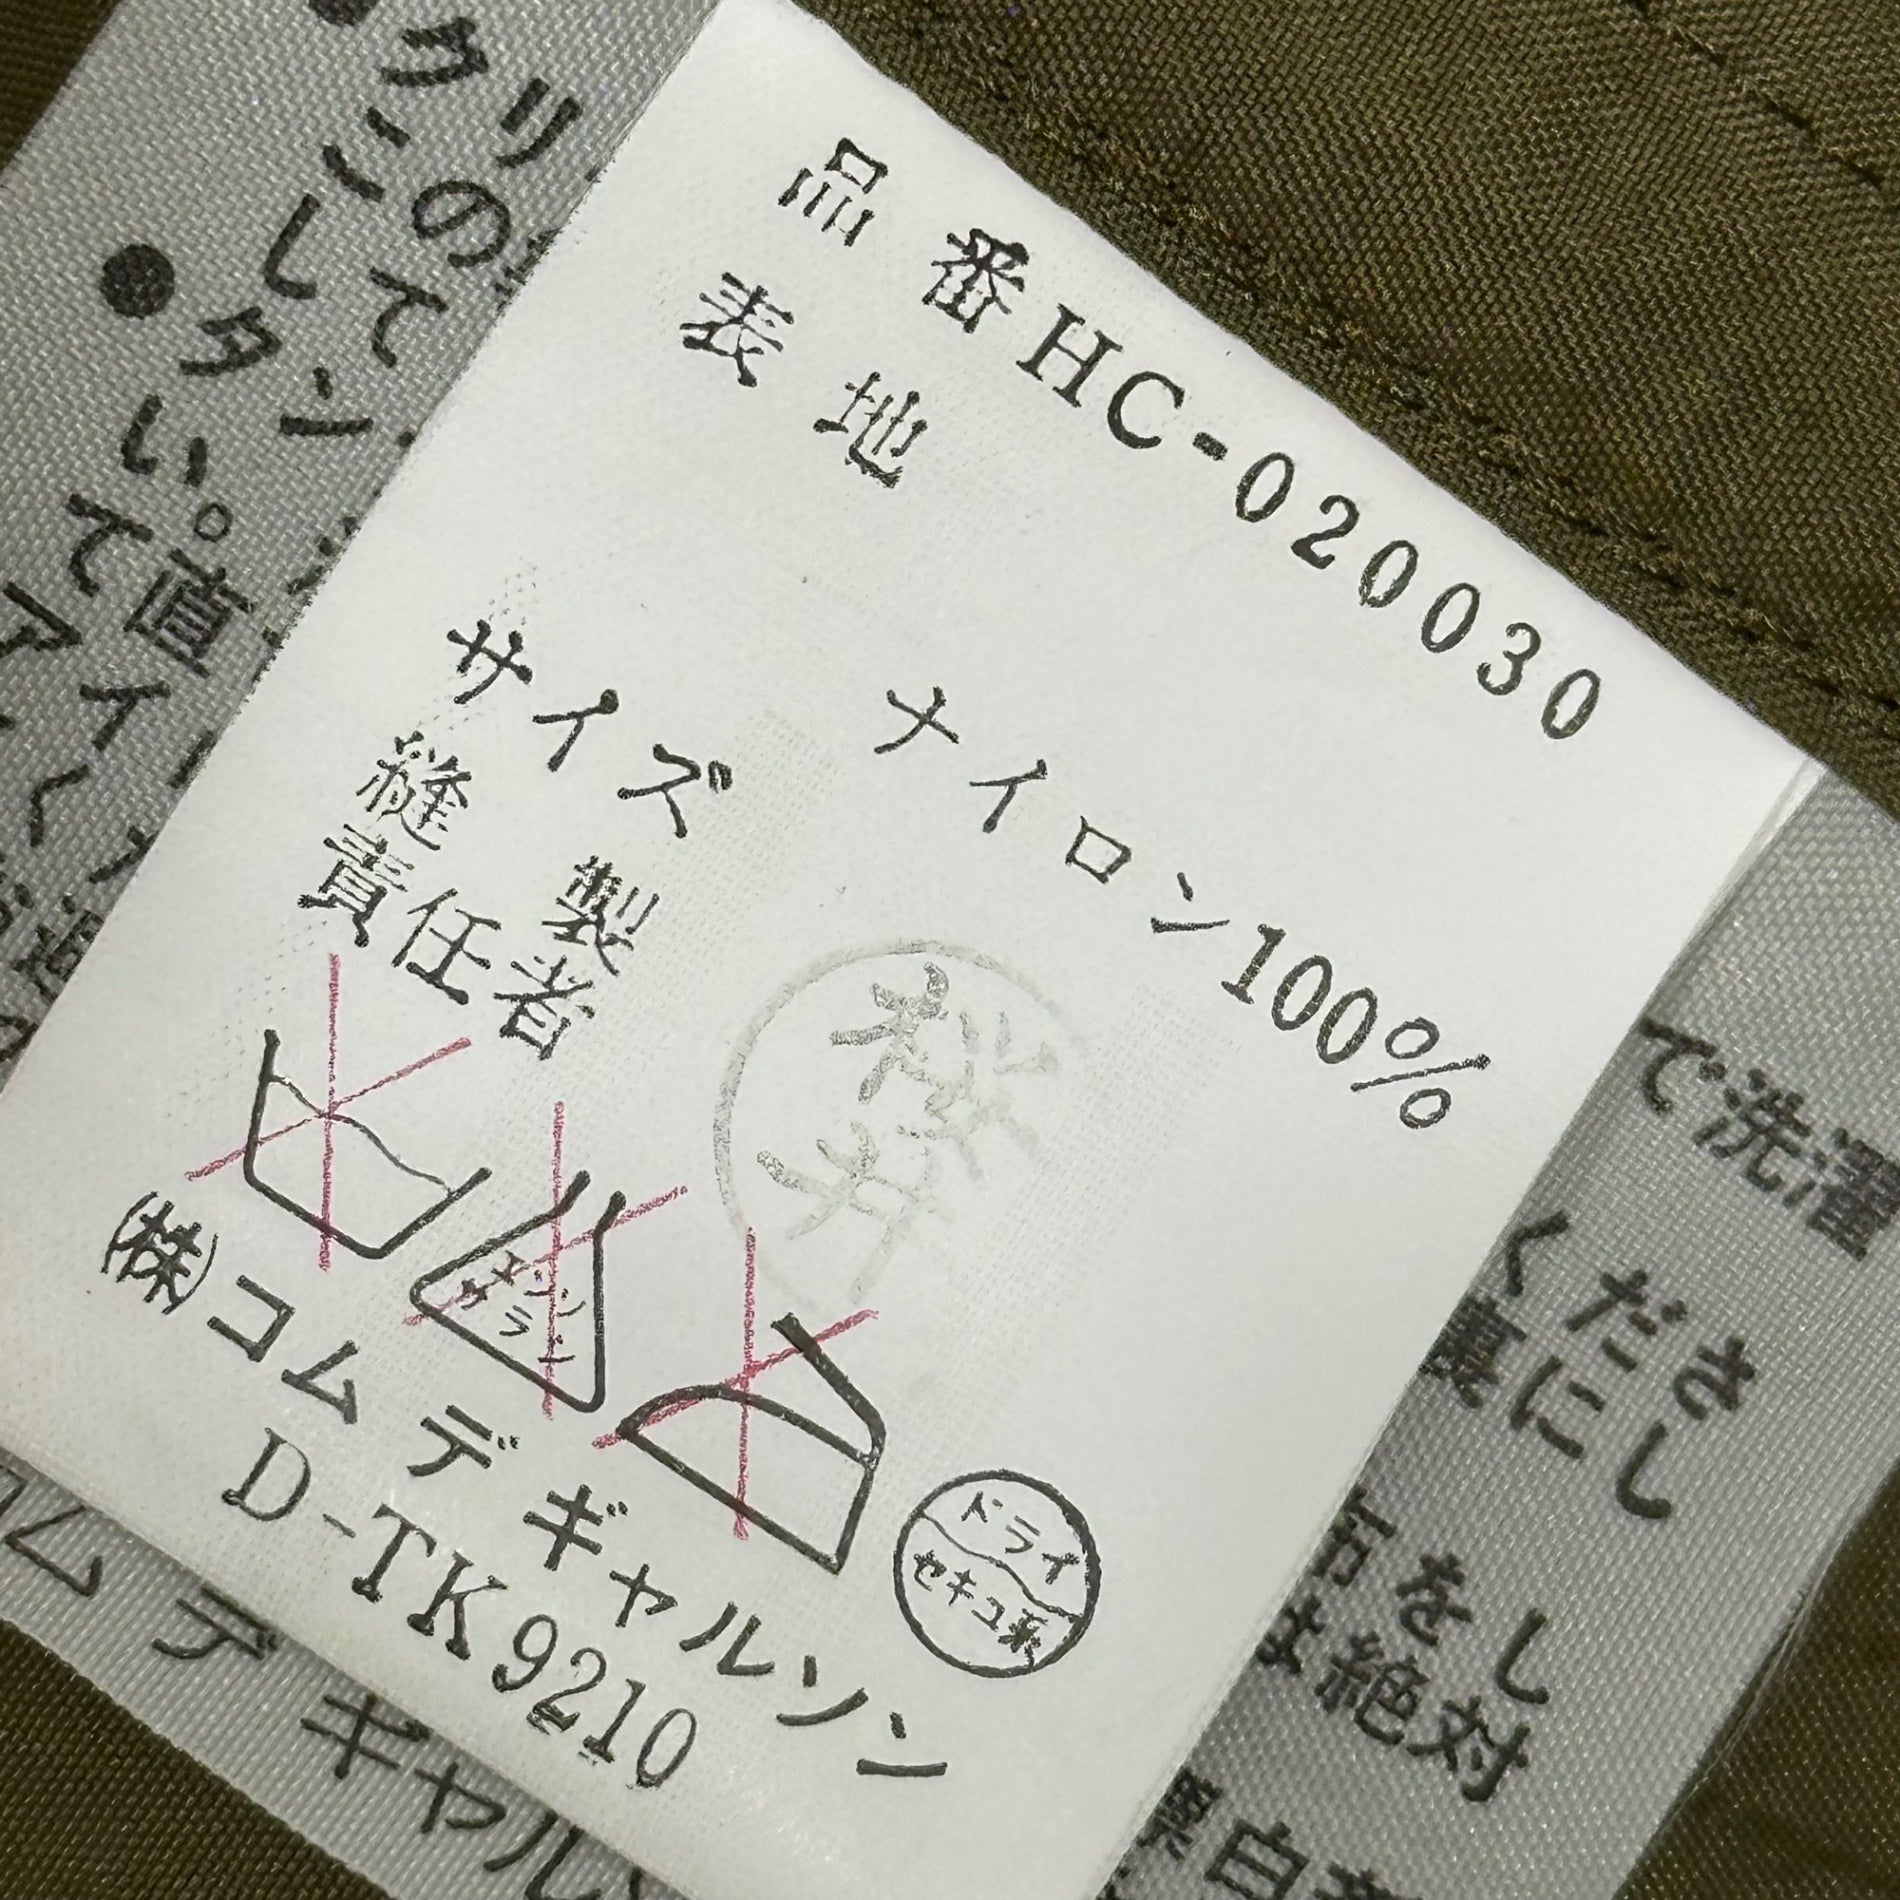 品番HC-020030
表地
ナイロン100%
サイズ
縫製
責任者
桜井
エンソサラシ
ドライ
セキユ系
㈱コムデギャルソン
D-TK9210
●クリ
この
して
●タン
い。
て直
アイ
で洗濯
ください
裏にし
をし
は絶対
コムデギャル